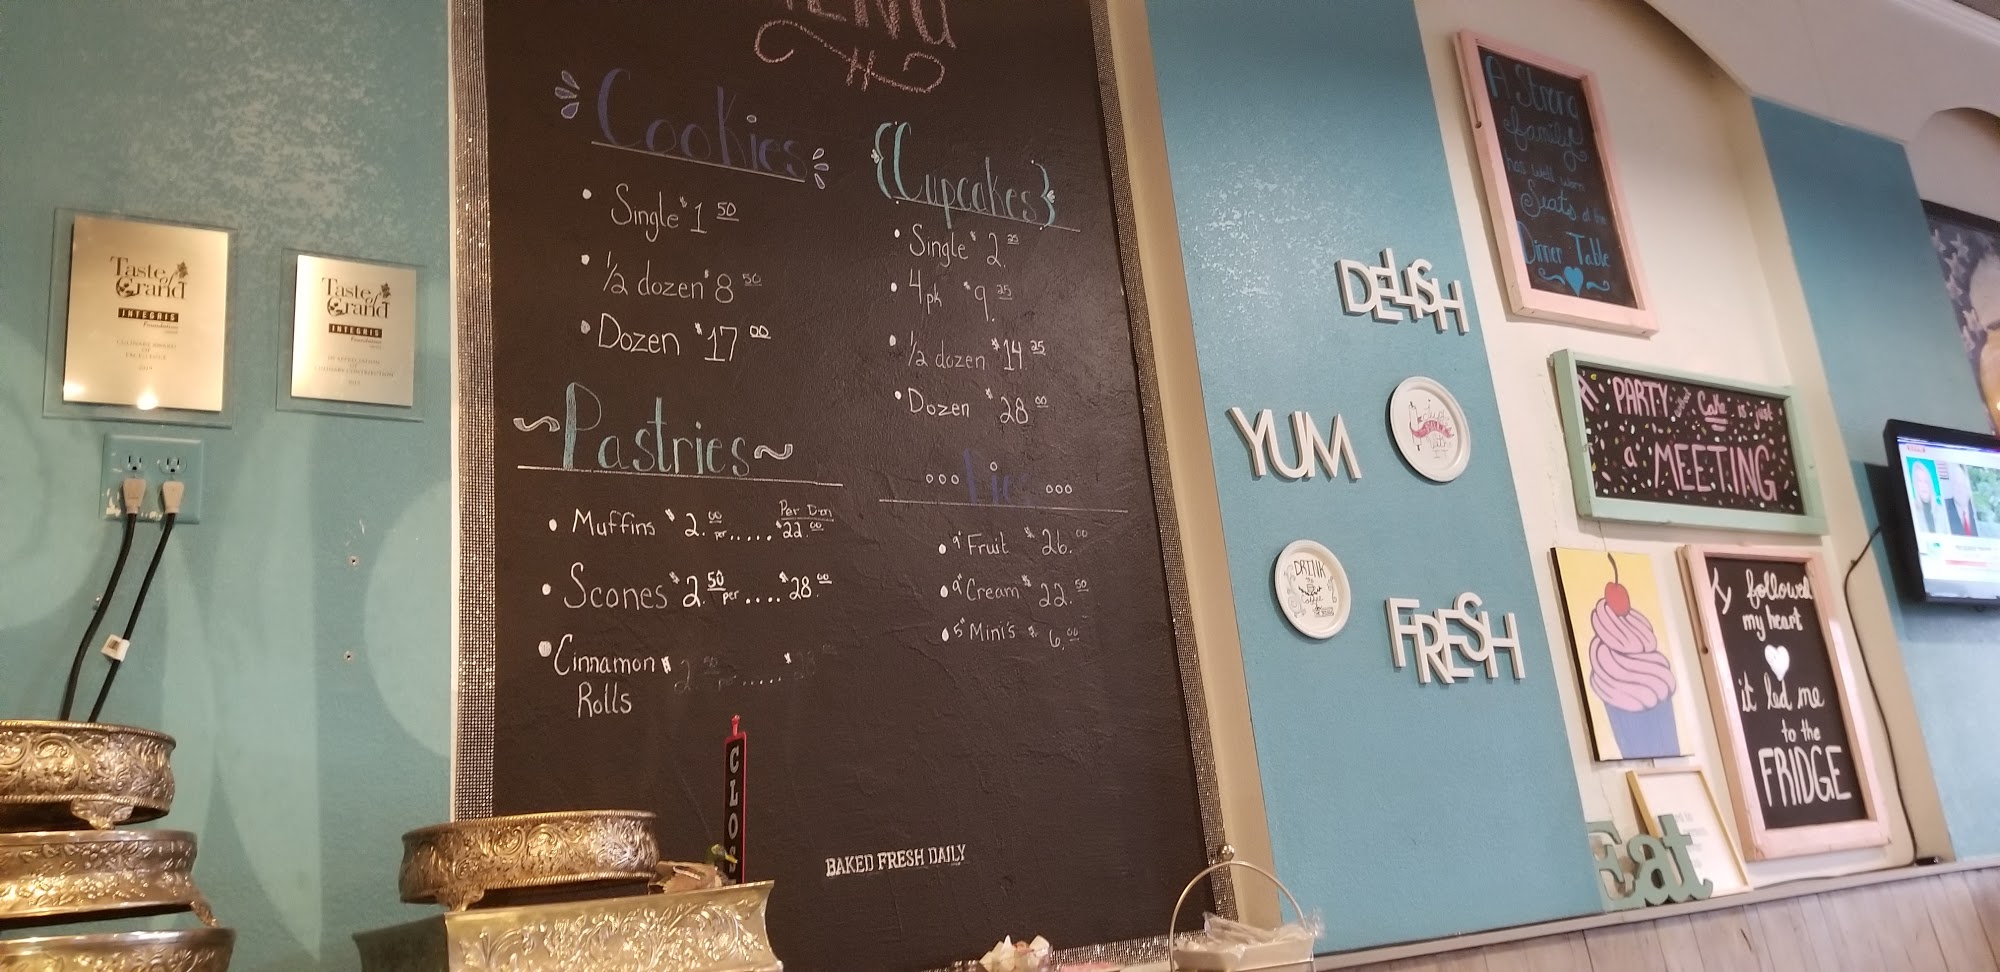 Taste
of
Grand
INTEGRIS
Foundation
CULINARY AWARD
OF
EXCELLENCE
Taste
of
Grand
INTEGRIS
Foundation
IN APPRECIATION
OF
CULINARY CONTRIBUTION
Cookies
• Single $1 50
• 1/2 dozen $8 50
• Dozen $17 00
~Pastries~
• Muffins $2. 00 per..... Per Dzn $22. 00
• Scones $2. 50 per.... $28. 00
• Cinnamon $2. 50 ..... $28 00
Rolls
{Cupcakes}
• Single $2. 25
• 4pk $9. 25
• 1/2 dozen $14 25
• Dozen $28 00
Pies
• 9" Fruit $26. 00
• 9" Cream $22. 50
• 5" Mini's $6. 00
CLOS
BAKED FRESH DAILY
DELISH
YUM
FRESH
DRINK
Coffee
A Strong
family
has well worn
Seats at the
Dinner Table
A PARTY without Cake is just
a MEETING
I followed
my heart
it led me
to the
FRIDGE
Eat